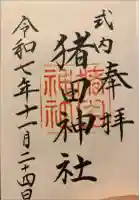 奉拝
式内
猪田神社
令和七年十一月二十四日